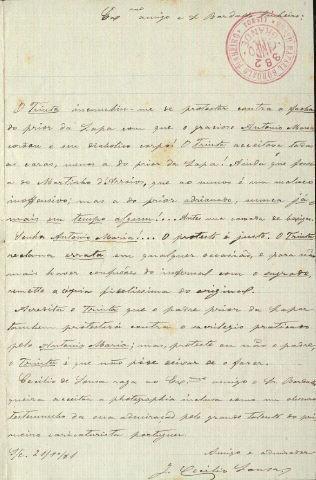 Ex.mo amigo e Sr. Bordallo Pinheiro:
O Trinta incumbiu-me de protestar contra a
do prior da Lapa com que o gracioso Antonio Maria
coroou o seu diabolico corpo! O Trinta acceitou todas
as caras, menos a do prior da Lapa! Ainda que fosse
a do Martinho d'Arrôio, que ao menos é um maluco
inoffensivo; mas a do prior, nunca já
mais em tempo algum!... Antes uma camara de bexigas
Senhor Antonio Maria!... O protesto é justo. O Trinta
reclama errata em qualquer occasião, e para não
mais haver confusões do infernal com o sagrado,
remetto a cópia fidelissima do original.
Acredita o Trinta que o padre prior da Lapa
tambem protestará contra o sacrilegio praticado
pelo Antonio Maria; mas, proteste ou não o padre,
o Trinta é que não póde deixar de o fazer.
Cecilio de Sousa roga ao Ex.mo amigo o Sr. Bordallo
queira acceitar a photographia inclusa como um
testemunho da sua admiração pelo grande talento do pri-
meiro caricaturista portuguez.
Amigo e admirador
J. Cecilio Sousa